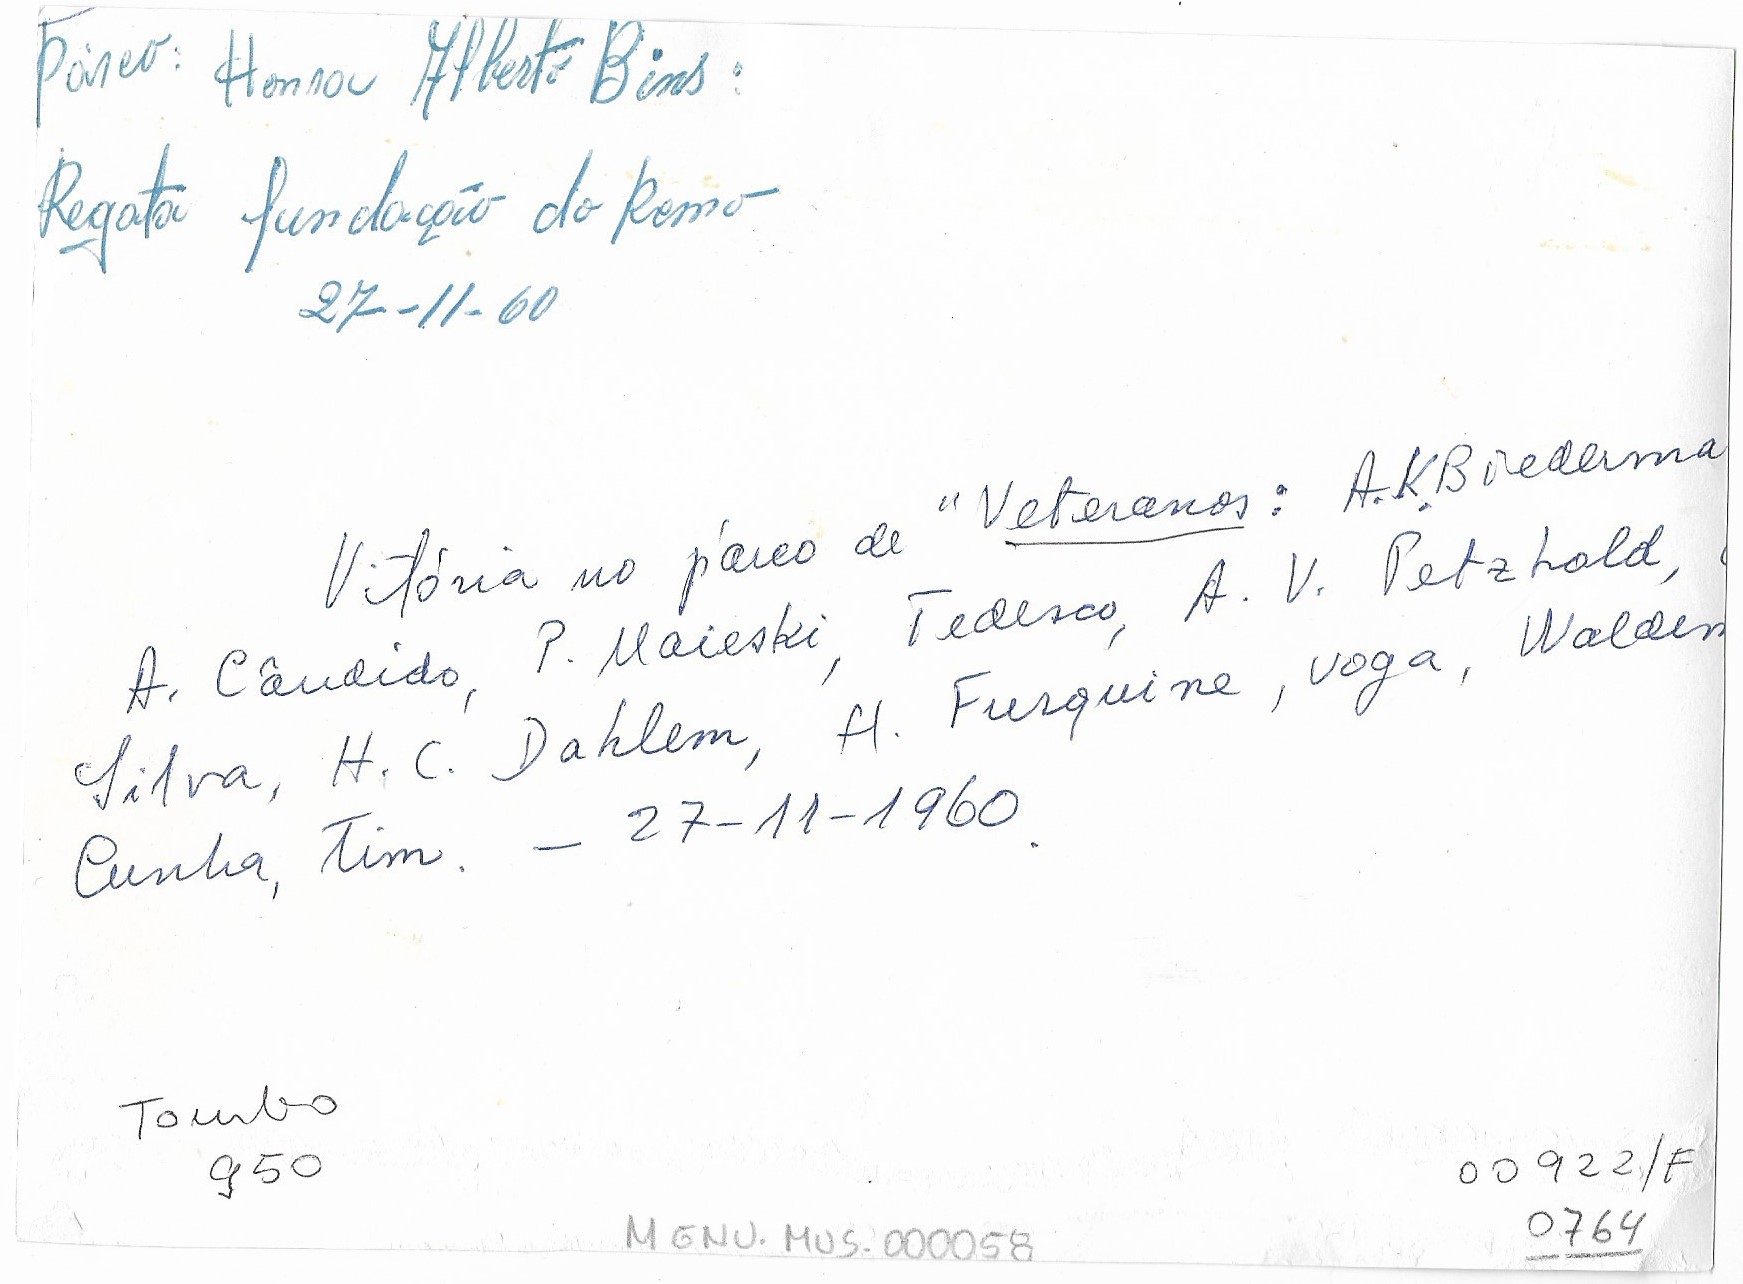 Páreo: Honra Alberto Bins:
Regata fundação do Remo
27-11-60
Vitória no páreo de "Veteranos: A.K. Biederma
A. Cândido, P. Maieski, Tedesco, A. V. Petzhold,
Silva, H. C. Dahlem, H. Furquine, voga, Waldem
Cunha, Tim. - 27-11-1960.
Tombo
950
00922/F
0764
MGNU.MUS.000058